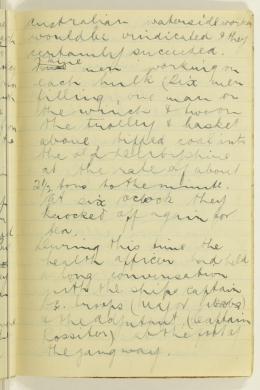 Australian waterside worker
would be vindicated & they
certainly succeeded.
men working on
each hulk (six men
filling, one man on
the winch & two on
the trolley & basket
above, tipped coal into
the old
at the rate of about
2½ tons to the minute.
At six oclock they
knocked off again for
tea.
During this time the
health officer had held
a long conversation
with the ships captain
O.C. troops
& the adjutant, (Captain
Rossiter) at the foot of
the gangway.